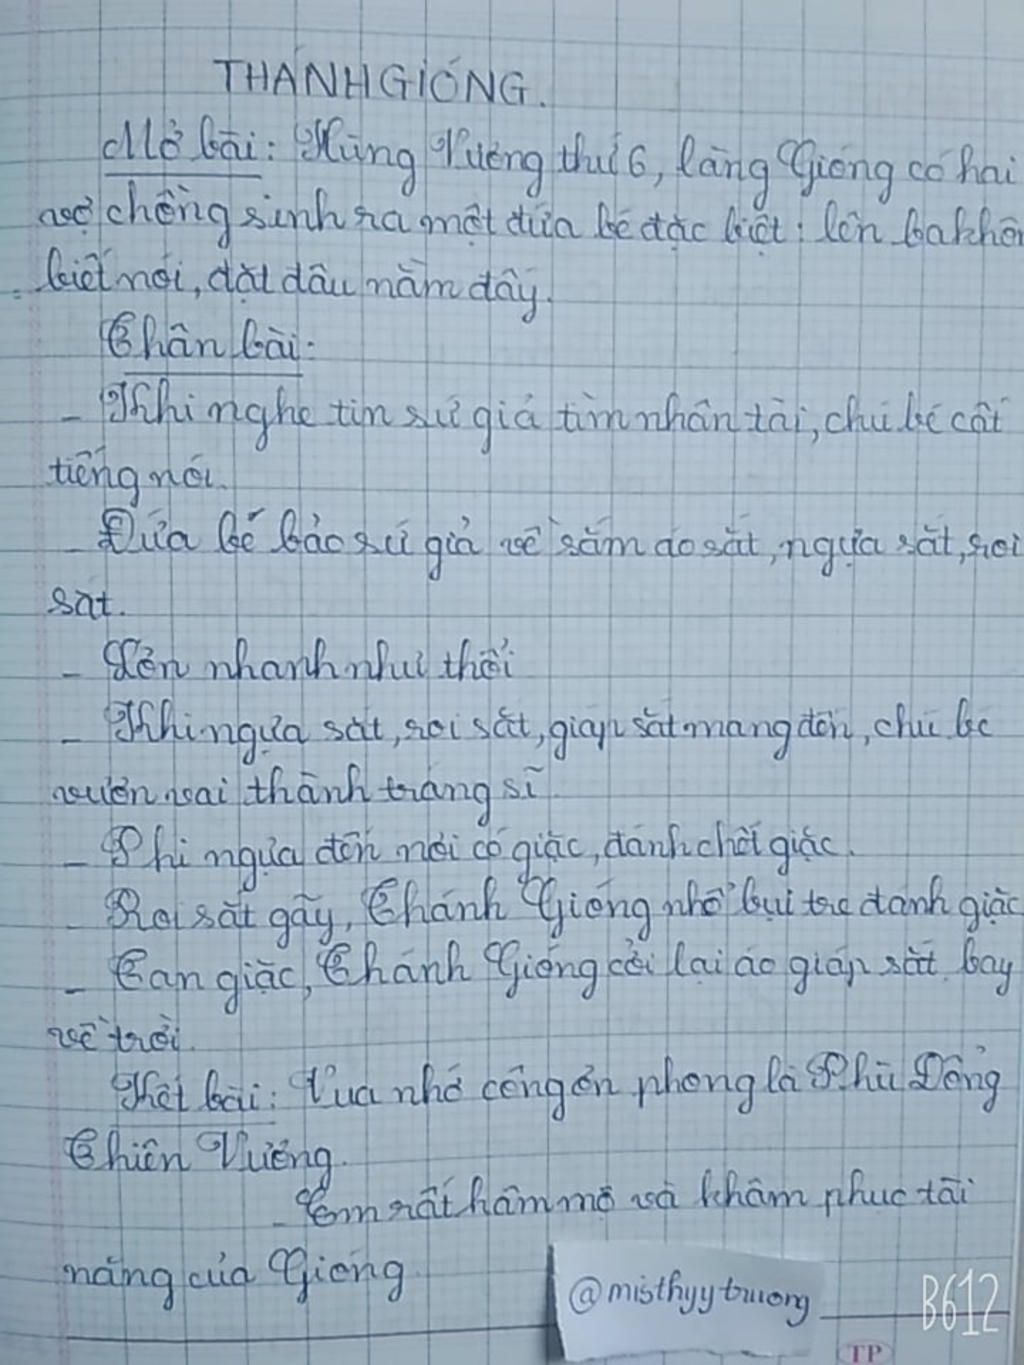 THÁNH GIÓNG.
Mở bài: Hùng Vương thứ 6, làng Gióng có hai
vợ chồng sinh ra một đứa bé đặc biệt: lên ba khôn
biết nói, đặt đâu nằm đấy.
Thân bài:
- Khi nghe tin sứ giả tìm nhân tài, chú bé cất
tiếng nói.
- Đứa bé bảo sứ giả về sắm áo sắt, ngựa sắt, roi
sắt.
- Lớn nhanh như thổi
- Khi ngựa sắt, roi sắt, giáp sắt mang đến, chú bé
vươn vai thành tráng sĩ.
- Phi ngựa đến nơi có giặc, đánh chết giặc.
- Roi sắt gãy, Thánh Gióng nhổ bụi tre đánh giặc
- Tan giặc, Thánh Gióng cởi lại áo giáp sắt bay
về trời.
Kết bài: Vua nhớ công ơn phong là Phù Đổng
Thiên Vương.
- Em rất hâm mộ và khâm phục tài
năng của Gióng.
@misthyytruong
B612
TP